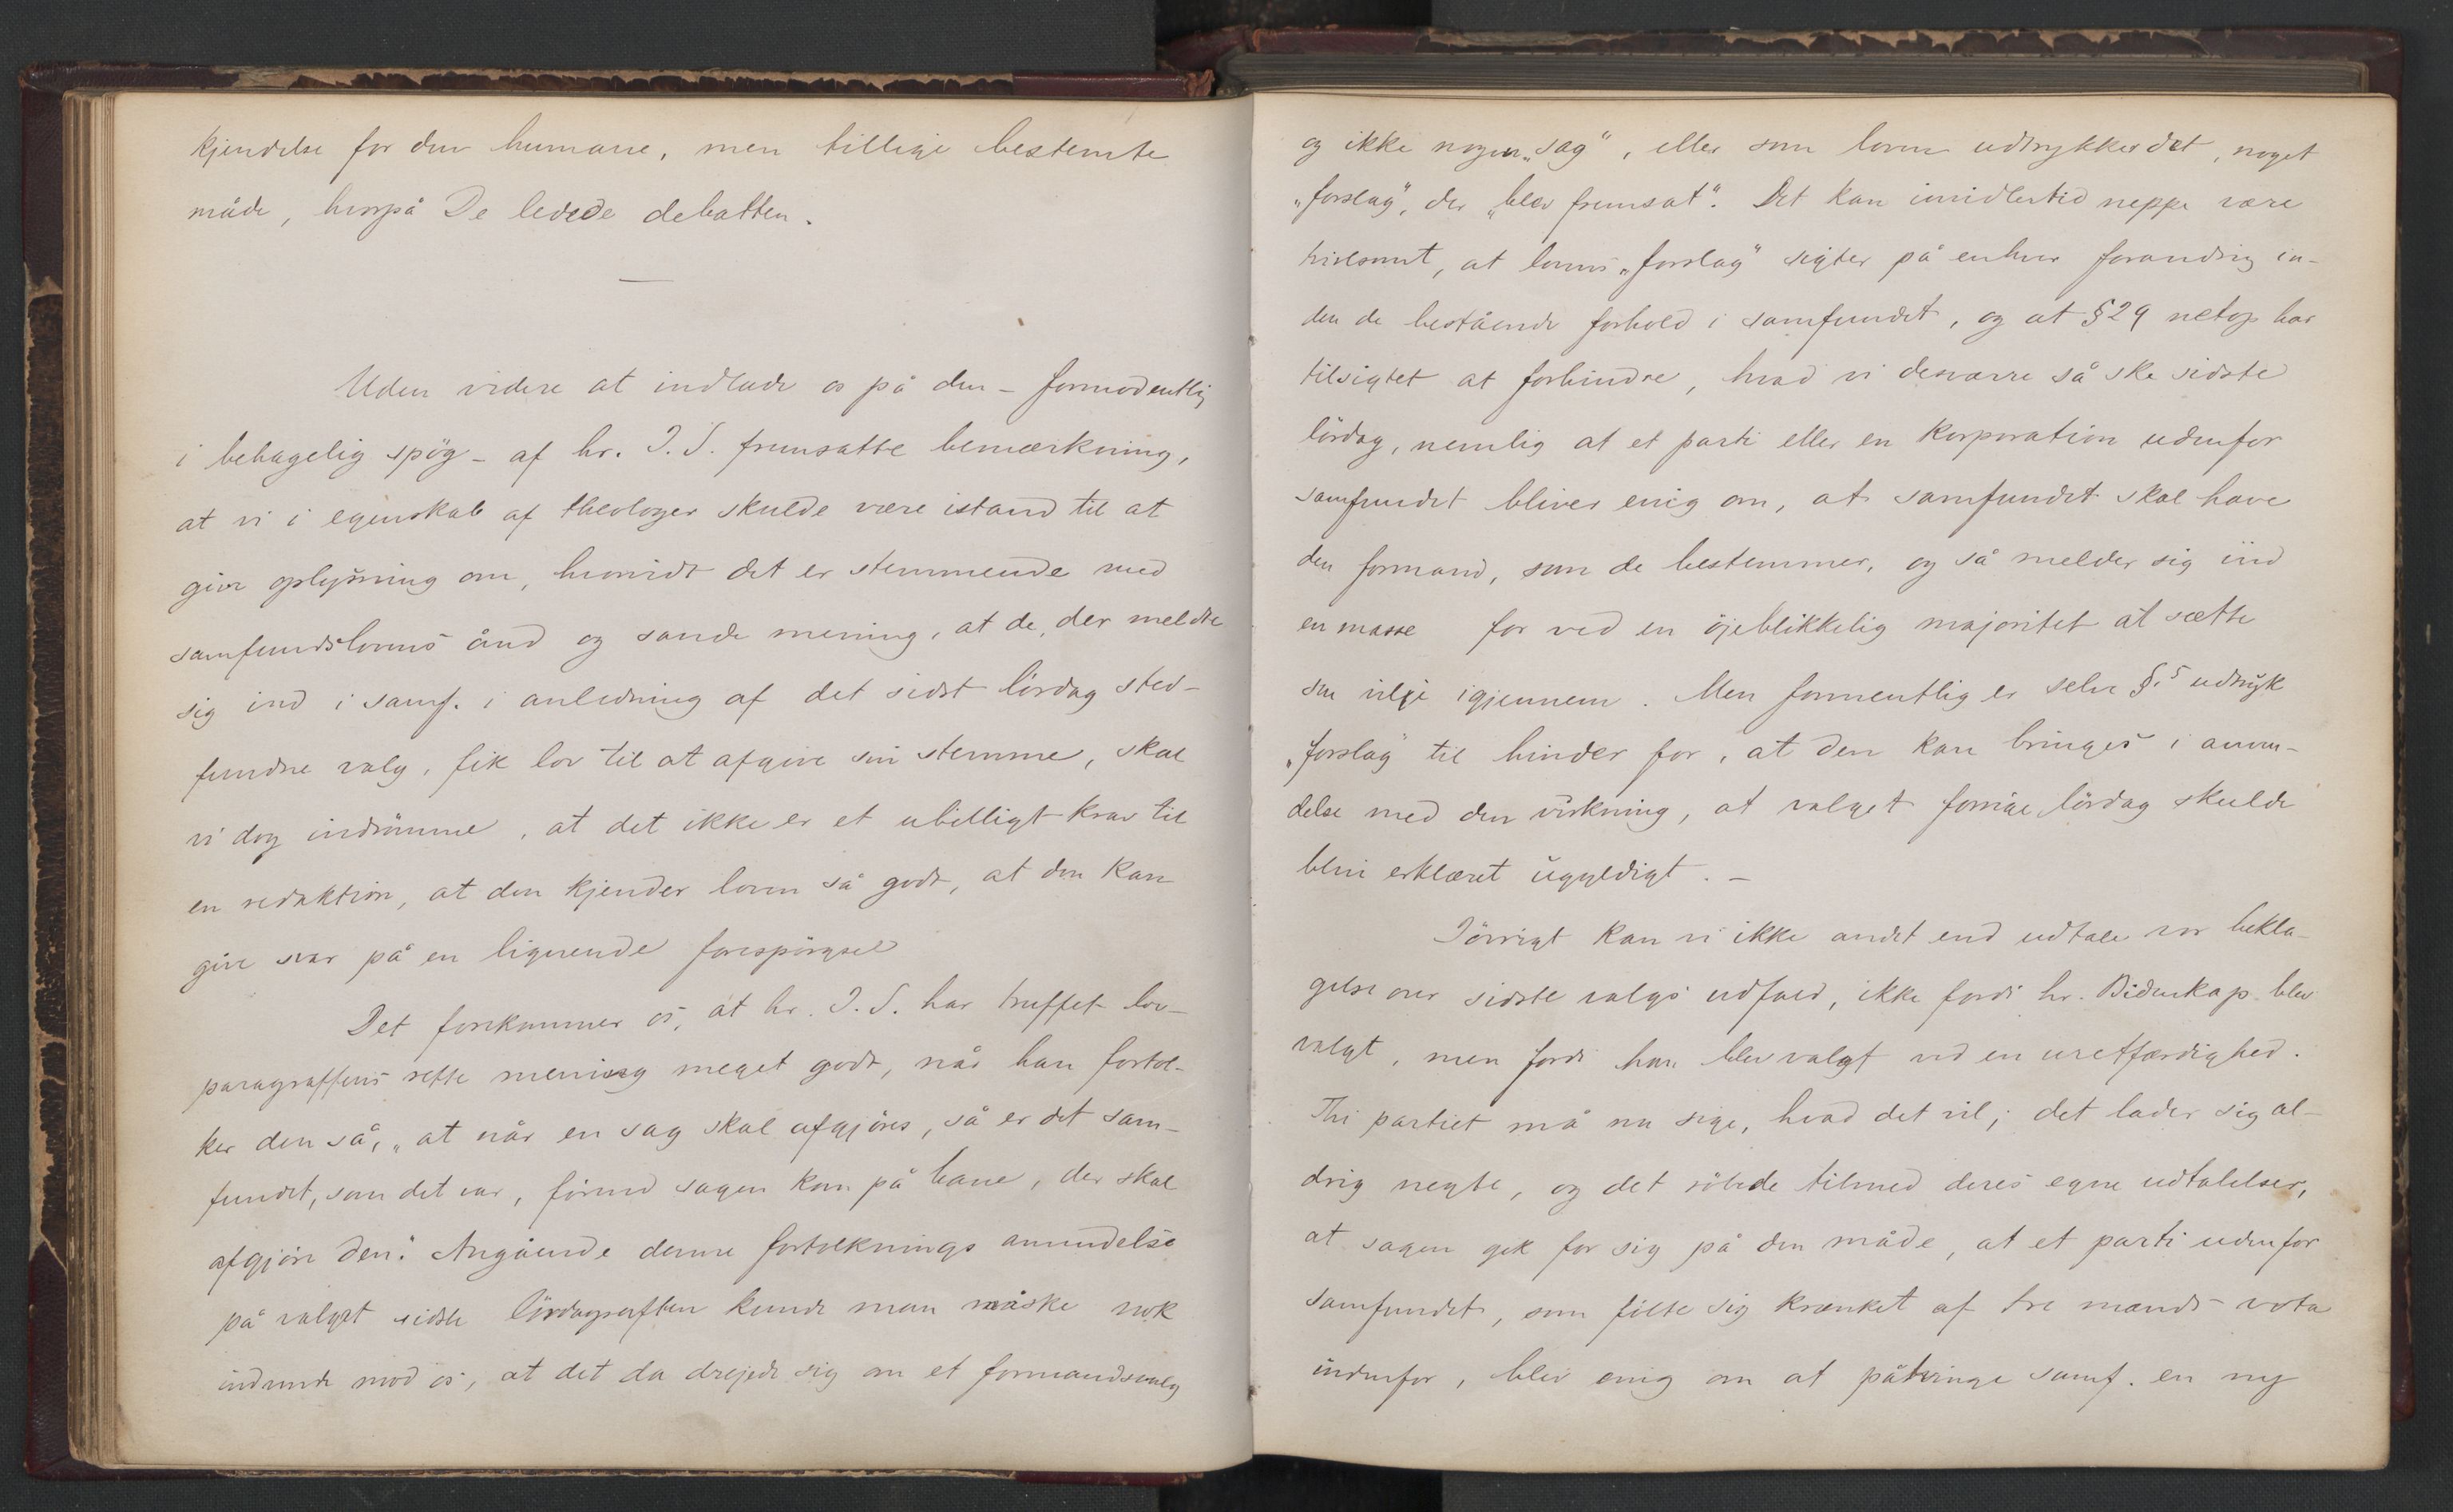 kjendelse for den humane, men tillige bestemte
måde, hvorpå De ledede debatten.
—
Uden videre at indlade os på den – formodentlig
i behagelig spøg – af hr. I. S. fremsatte bemærkning,
at vi i egenskab af theologer skulde være istand til at
give oplysning om, hvorvidt det er stemmende med
samfundslovens ånd og sande mening, at de, der meldte
sig ind i samf. i anledning af det sidst lördag sted-
fundne valg, fik lov til at afgive sin stemme, skal
vi dog indrömme, at det ikke er et ubilligt krav til
en redaktion, at den kjender loven så godt, at den kan
give svar på en lignende forespörgsel
Det forekommer os, at hr. I. S. har truffet lov-
paragraffens rette mening meget godt, når han fortol-
ker den så, „at når en sag skal afgjöres, så er det sam-
fundet, som det var, förend sagen kom på bane, der skal
afgjöre den.“ Angående denne fortolknings anvendelse
på valget sidste lördagsaften kunde man måske nok
indvende mod os, at det da drejede sig om et formandsvalg
og ikke nogen „sag“, eller som loven udtrykker det, noget
„forslag“, der „blev fremsat“. Det kan imidlertid neppe være
tvivlsomt, at lovens „forslag“ sigter på enhver forandring in-
den de bestående forhold i samfundet, og at § 29 netop har
tilsigtet at forhindre, hvad vi desværre så ske sidste
lördag, nemlig at et parti eller en korporation udenfor
samfundet bliver enig om, at samfundet skal have
den formand, som de bestemmer, og så melder sig ind
en masse for ved en öjeblikkelig majoritet at sætte
sin vilje igjennem. Men formentlig er selve §.s udtryk
„forslag“ til hinder for, at den kan bringes i anven-
delse med den virkning, at valget forrige lördag skulde
blive erklæret ugyldigt. –
Iövrigt kan vi ikke andet end udtale vor bekla-
gelse over sidste valgs udfald, ikke fordi hr. Bidenkap blev
valgt, men fordi han blev valgt ved en uretfærdighed.
Thi partiet må nu sige, hvad det vil; det lader sig al-
drig negte, og det röbede tilmed deres egne udtalelser,
at sagen gik for sig på den måde, at et parti udenfor
samfundet, som fölte sig krænket af tre mænds vota
indenfor, blev enig om at påtvinge samf. en ny